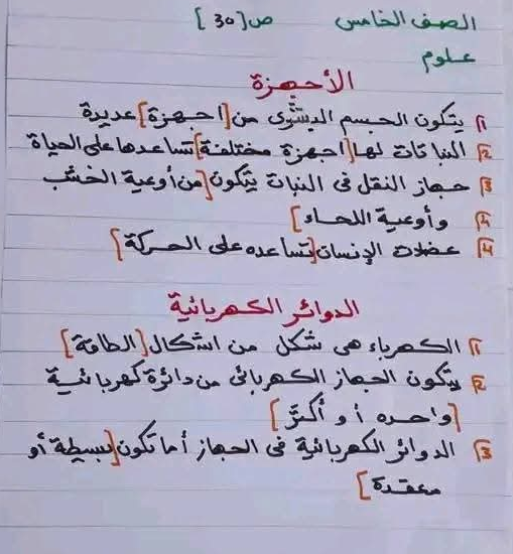 الصف الخامس ص [30]
علوم
الأجهزة
1 يتكون الجسم البشرى من [اجهزة] عديدة
2 النباتات لها [اجهزة مختلفة] تساعدها على الحياة
3 جهاز النقل فى النبات يتكون [من أوعية الخشب
4 وأوعية اللحاء]
4 عضلات الإنسان [تساعده على الحركة]
الدوائر الكهربائية
1 الكهرباء هى شكل من اشكال [الطاقة]
2 يتكون الجهاز الكهربائى من دائرة كهربائية
[واحده أو أكثر]
3 الدوائر الكهربائية فى الجهاز أما تكون [بسيطة أو
معقدة]